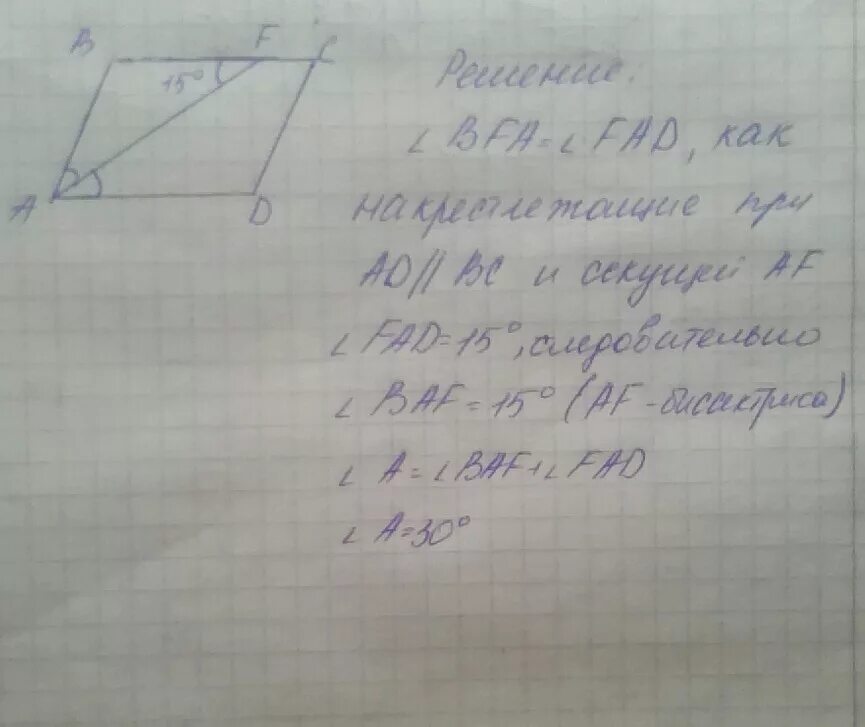 B F C
15°
A D
Решение:
∠ BFA = ∠ FAD, как
накрестлежащие при
AD || BC и секущей AF
∠ FAD = 15°, следовительно
∠ BAF = 15° (AF - бисектриса)
∠ A = ∠ BAF + ∠ FAD
∠ A = 30°